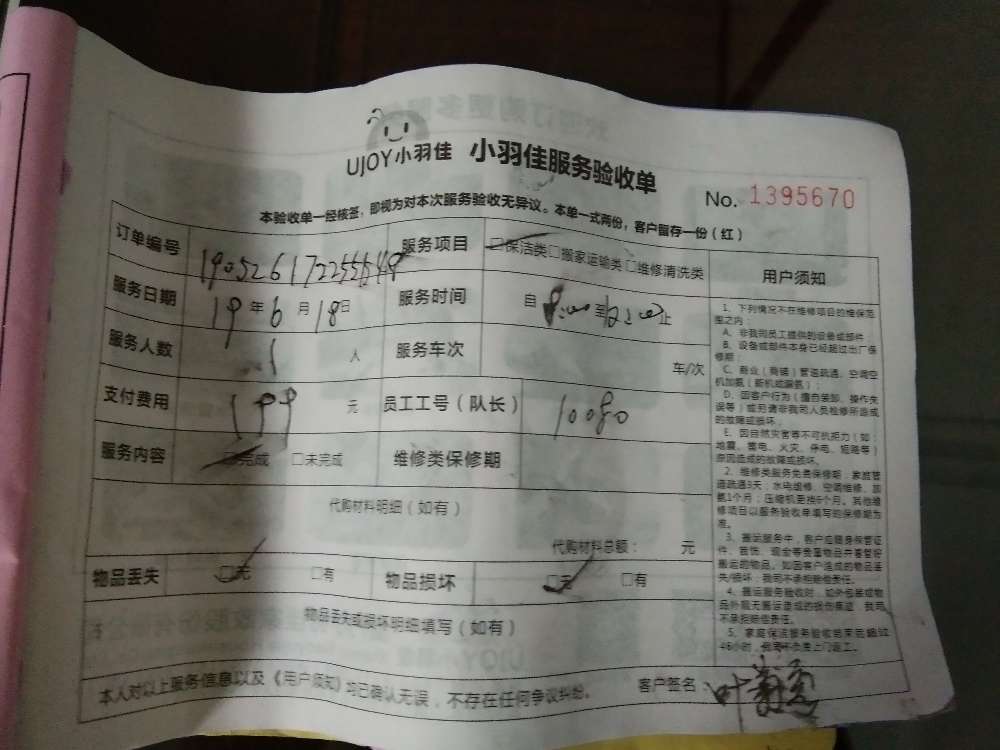 UJOY小羽佳 小羽佳服务验收单
No. 1395670
本验收单一经核签，即视为对本次服务验收无异议。本单一式两份，客户留存一份（红）
订单编号 服务项目 □保洁类□搬家运输类□维修清洗类 用户须知
服务日期 19年6月18日 服务时间 自 至 止
服务人数 1 人 服务车次 车/次
支付费用 199 元 员工工号（队长） 10080
服务内容 □完成 □未完成 维修类保修期
代购材料明细（如有）
代购材料总额： 元
物品丢失 □无 □有 物品损坏 □无 □有
物品丢失或损坏明细填写（如有）
本人对以上服务信息以及《用户须知》均已确认无误，不存在任何争议纠纷。 客户签名：
1、下列情况不在维修项目的维保范
围之内：
A、非我司员工提供的设备或部件
B、设备或部件本身已经超过出厂保
修期；
C、商业（商铺）管道疏通、空调空
机加氨（新机或漏氨）；
D、因客户行为（擅自装卸、操作失
误等）或另请非我司人员检修所造成
的故障或损坏；
E、因自然灾害等不可抗拒力（如：
地震、雷电、火灾、停电、短路等）
原因造成的故障或损坏。
2、维修类服务免费保修期：家庭管
道疏通3天；水电维修、空调维修、加
氨1个月；压缩机更换6个月。其他维
修项目以服务验收单填写的保修期为
准。
3、搬运服务中，客户应随身保管证
件、首饰、现金等贵重物品并看管好
搬运的物品。如因客户造成的物品丢
失/损坏，我司不承担赔偿责任。
4、搬运服务验收时，如外包装或物
品外观无搬运造成的损伤痕迹，我司
不承担赔偿责任。
5、家庭保洁服务验收结束后超过
48小时，我司不负责上门返工。